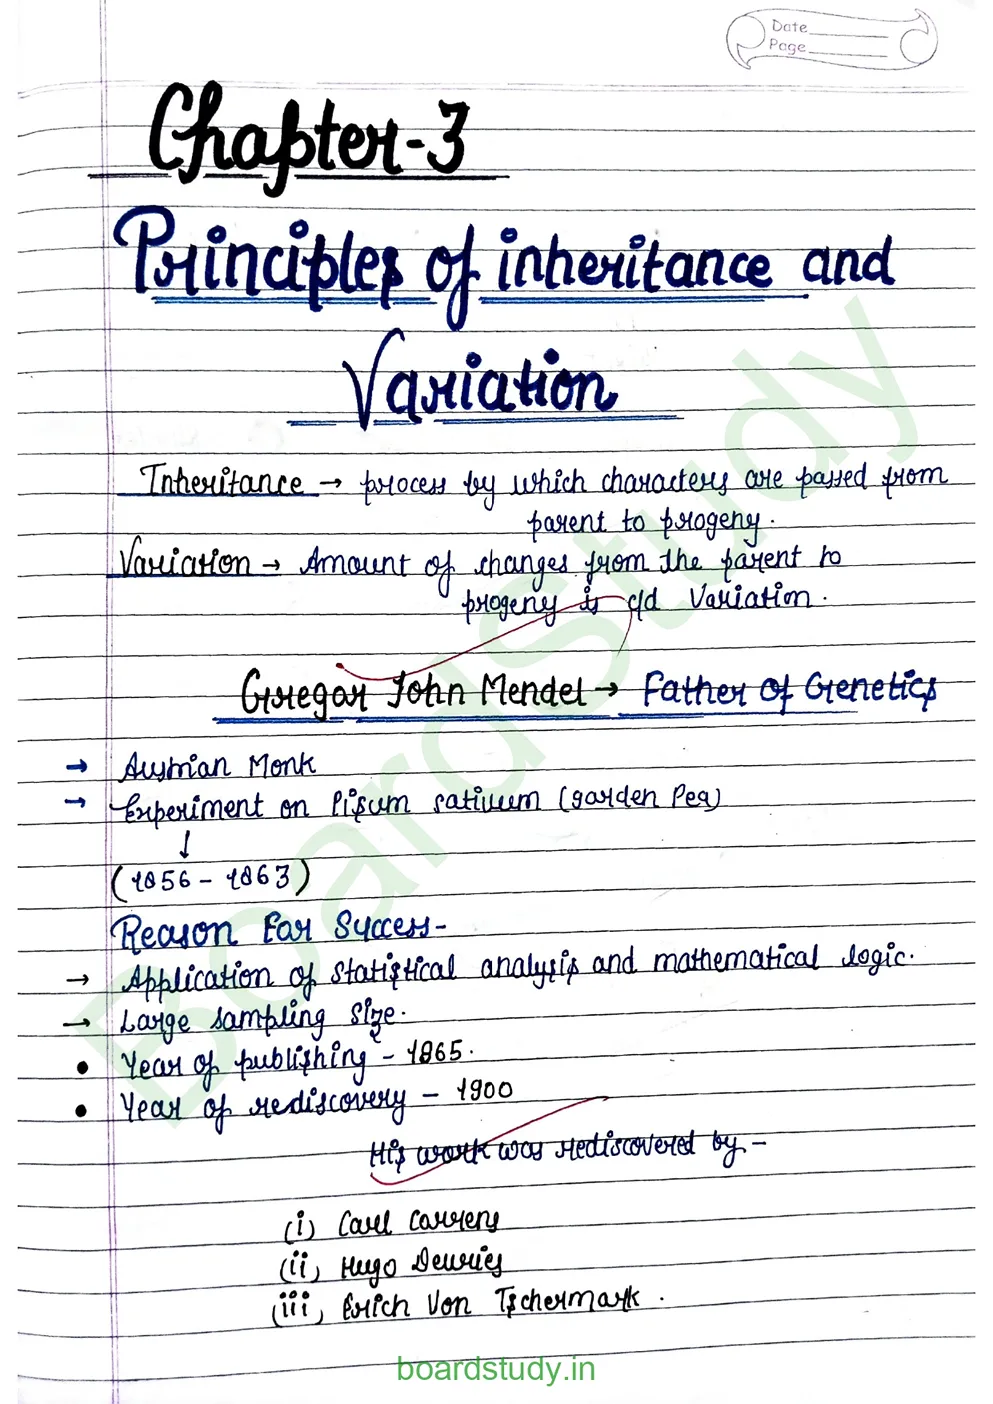 Date
Page
Chapter-3
Principles of inheritance and
Variation
Inheritance → process by which characters are passed from
parent to progeny.
Variation → Amount of changes from the parent to
progeny is c/d Variation.
Gregar John Mendel → Father of Genetics
→ Austrian Monk
→ Experiment on Pisum sativum (garden Pea)
↓
(1856 - 1863)
Reason For Success-
→ Application of statistical analysis and mathematical logic.
→ Large sampling size.
• Year of publishing - 1865.
• Year of rediscovery - 1900
His work was rediscovered by -
(i) Carl Correns
(ii) Hugo Devries
(iii) Erich Von Tschermark.
BoardStudy
boardstudy.in